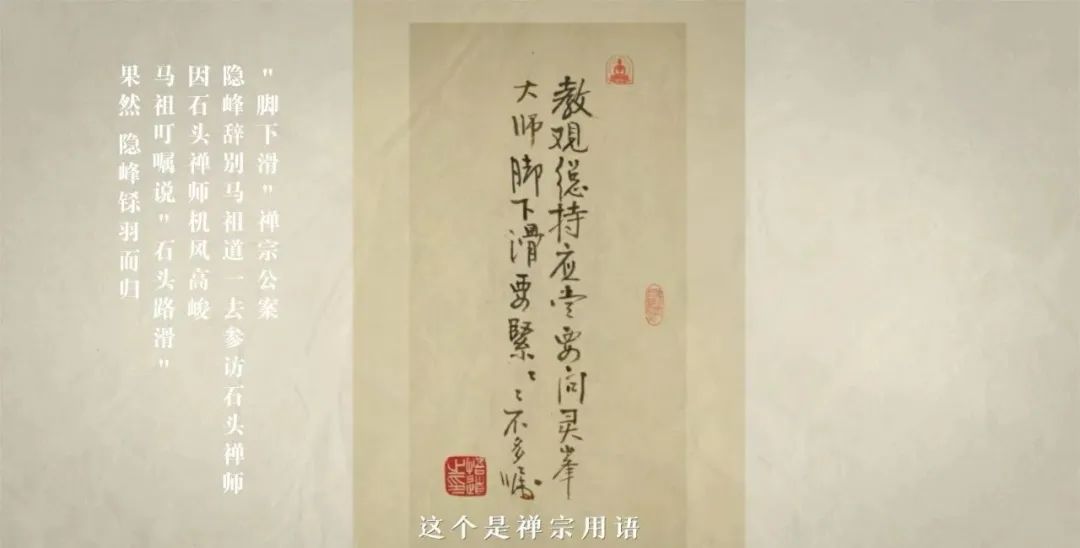 "脚下滑"禅宗公案
隐峰辞别马祖道一去参访石头禅师
因石头禅师机风高峻
马祖叮嘱说"石头路滑"
果然 隐峰铩羽而归
教观總持应當要问灵峯
大师脚下滑要緊〻〻不多嘱
这个是禅宗用语